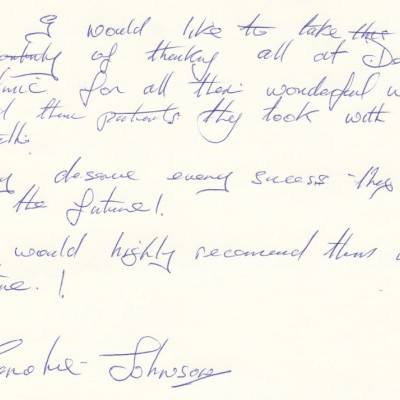 I would like to take this
of thanking all at D
for all their wonderful w
their patients they took with
deserve every success they
the future!.
would highly recomend this
!
Johnson